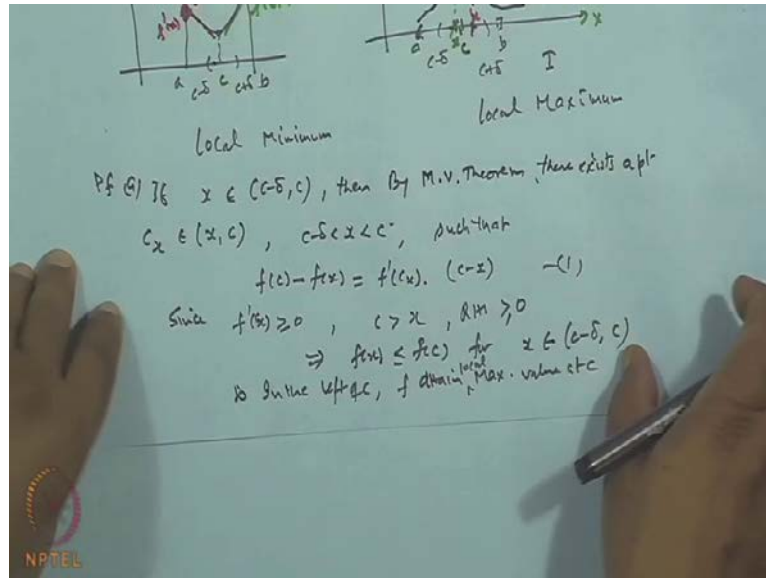 f'(x)
a c-δ c c+δ b
a c-δ x c c+δ b I
x
Local Minimum
Local Maximum
Pf (a) If x ∈ (c-δ, c), then By M.V. Theorem, there exists a pt.
c_x ∈ (x, c), c-δ < x < c, such that
f(c) - f(x) = f'(c_x). (c-x) —(1)
Since f'(x) ≥ 0, c > x, RHS ≥ 0
⇒ f(x) ≤ f(c) for x ∈ (c-δ, c)
So In the left of c, f attain local Max. value at c
NPTEL